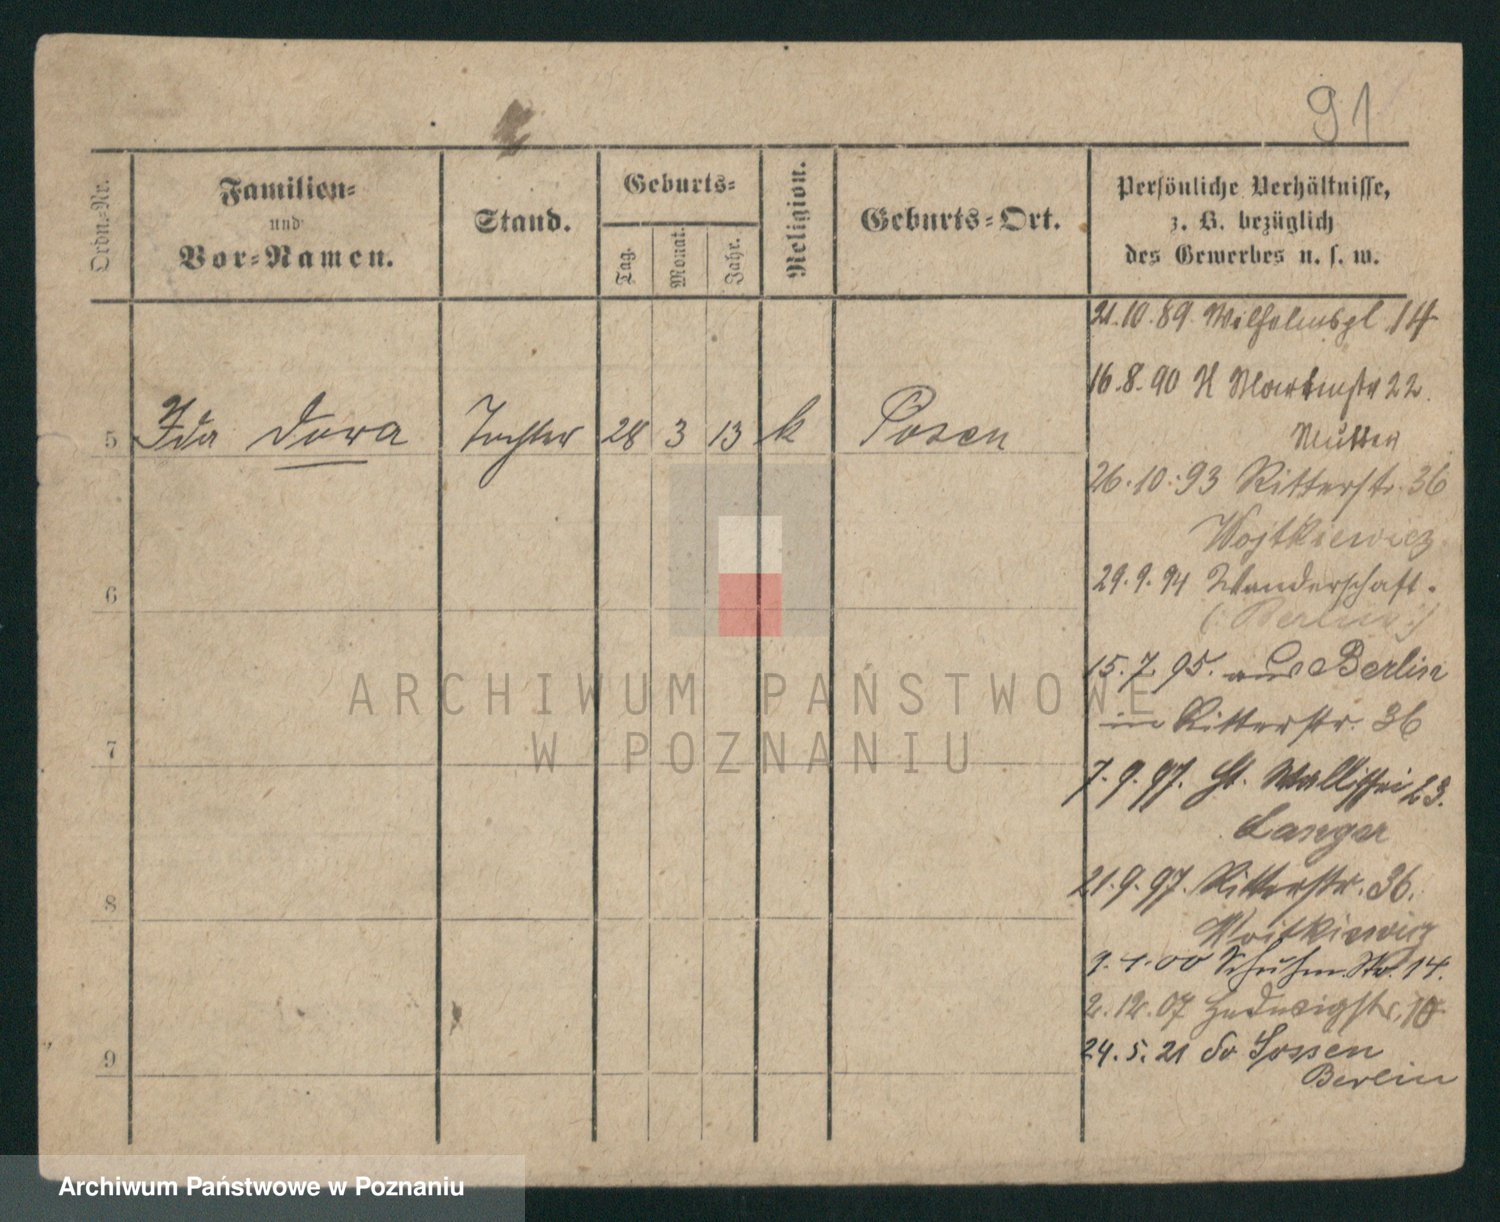 91
Ordn.-Nr.
Familien-
und
Vor-Namen.
Stand.
Geburts-
Tag.
Monat.
Jahr.
Religion.
Geburts-Ort.
Persönliche Verhältnisse,
z. B. bezüglich
des Gewerbes u. s. w.
21.10.89. Wilhelmspl 14
16.8.90 Martinstr 22.
Mutter
5 Ida Dora Tochter 28 3 13 k Posen
26.10.93 Ritterstr. 36
Wojtkiewicz
6
29.9.94 Wanderschaft.
(: Berlin :)
15.7.95. aus Berlin
in Ritterstr. 36
7
7.9.97. St. Wallischei 23.
Langer
21.9.97. Ritterstr. 36.
8
Woitkiewicz
9.4.00 Schuhm. Str. 14.
2.12.07 Hedwigstr. 10
9
24.5.21 Zossen
Berlin
ARCHIWUM PAŃSTWOWE
W POZNANIU
Archiwum Państwowe w Poznaniu